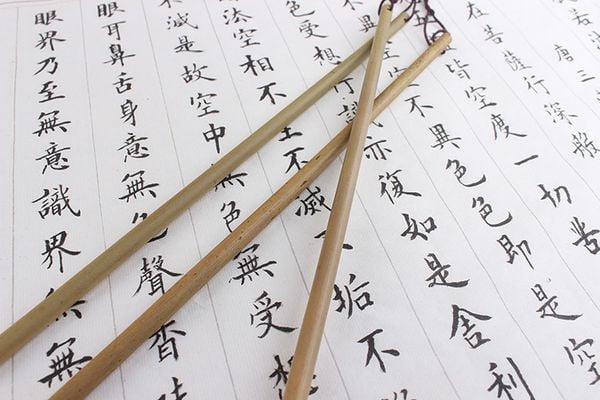 唐三
在菩薩行深般
皆空度一切苦
不異色色即是空
色受想行識亦復如是舍利
空相不生不滅不垢不
滅是故空中無色無受想
眼耳鼻舌身意無色聲香味
眼界乃至無意識界無無